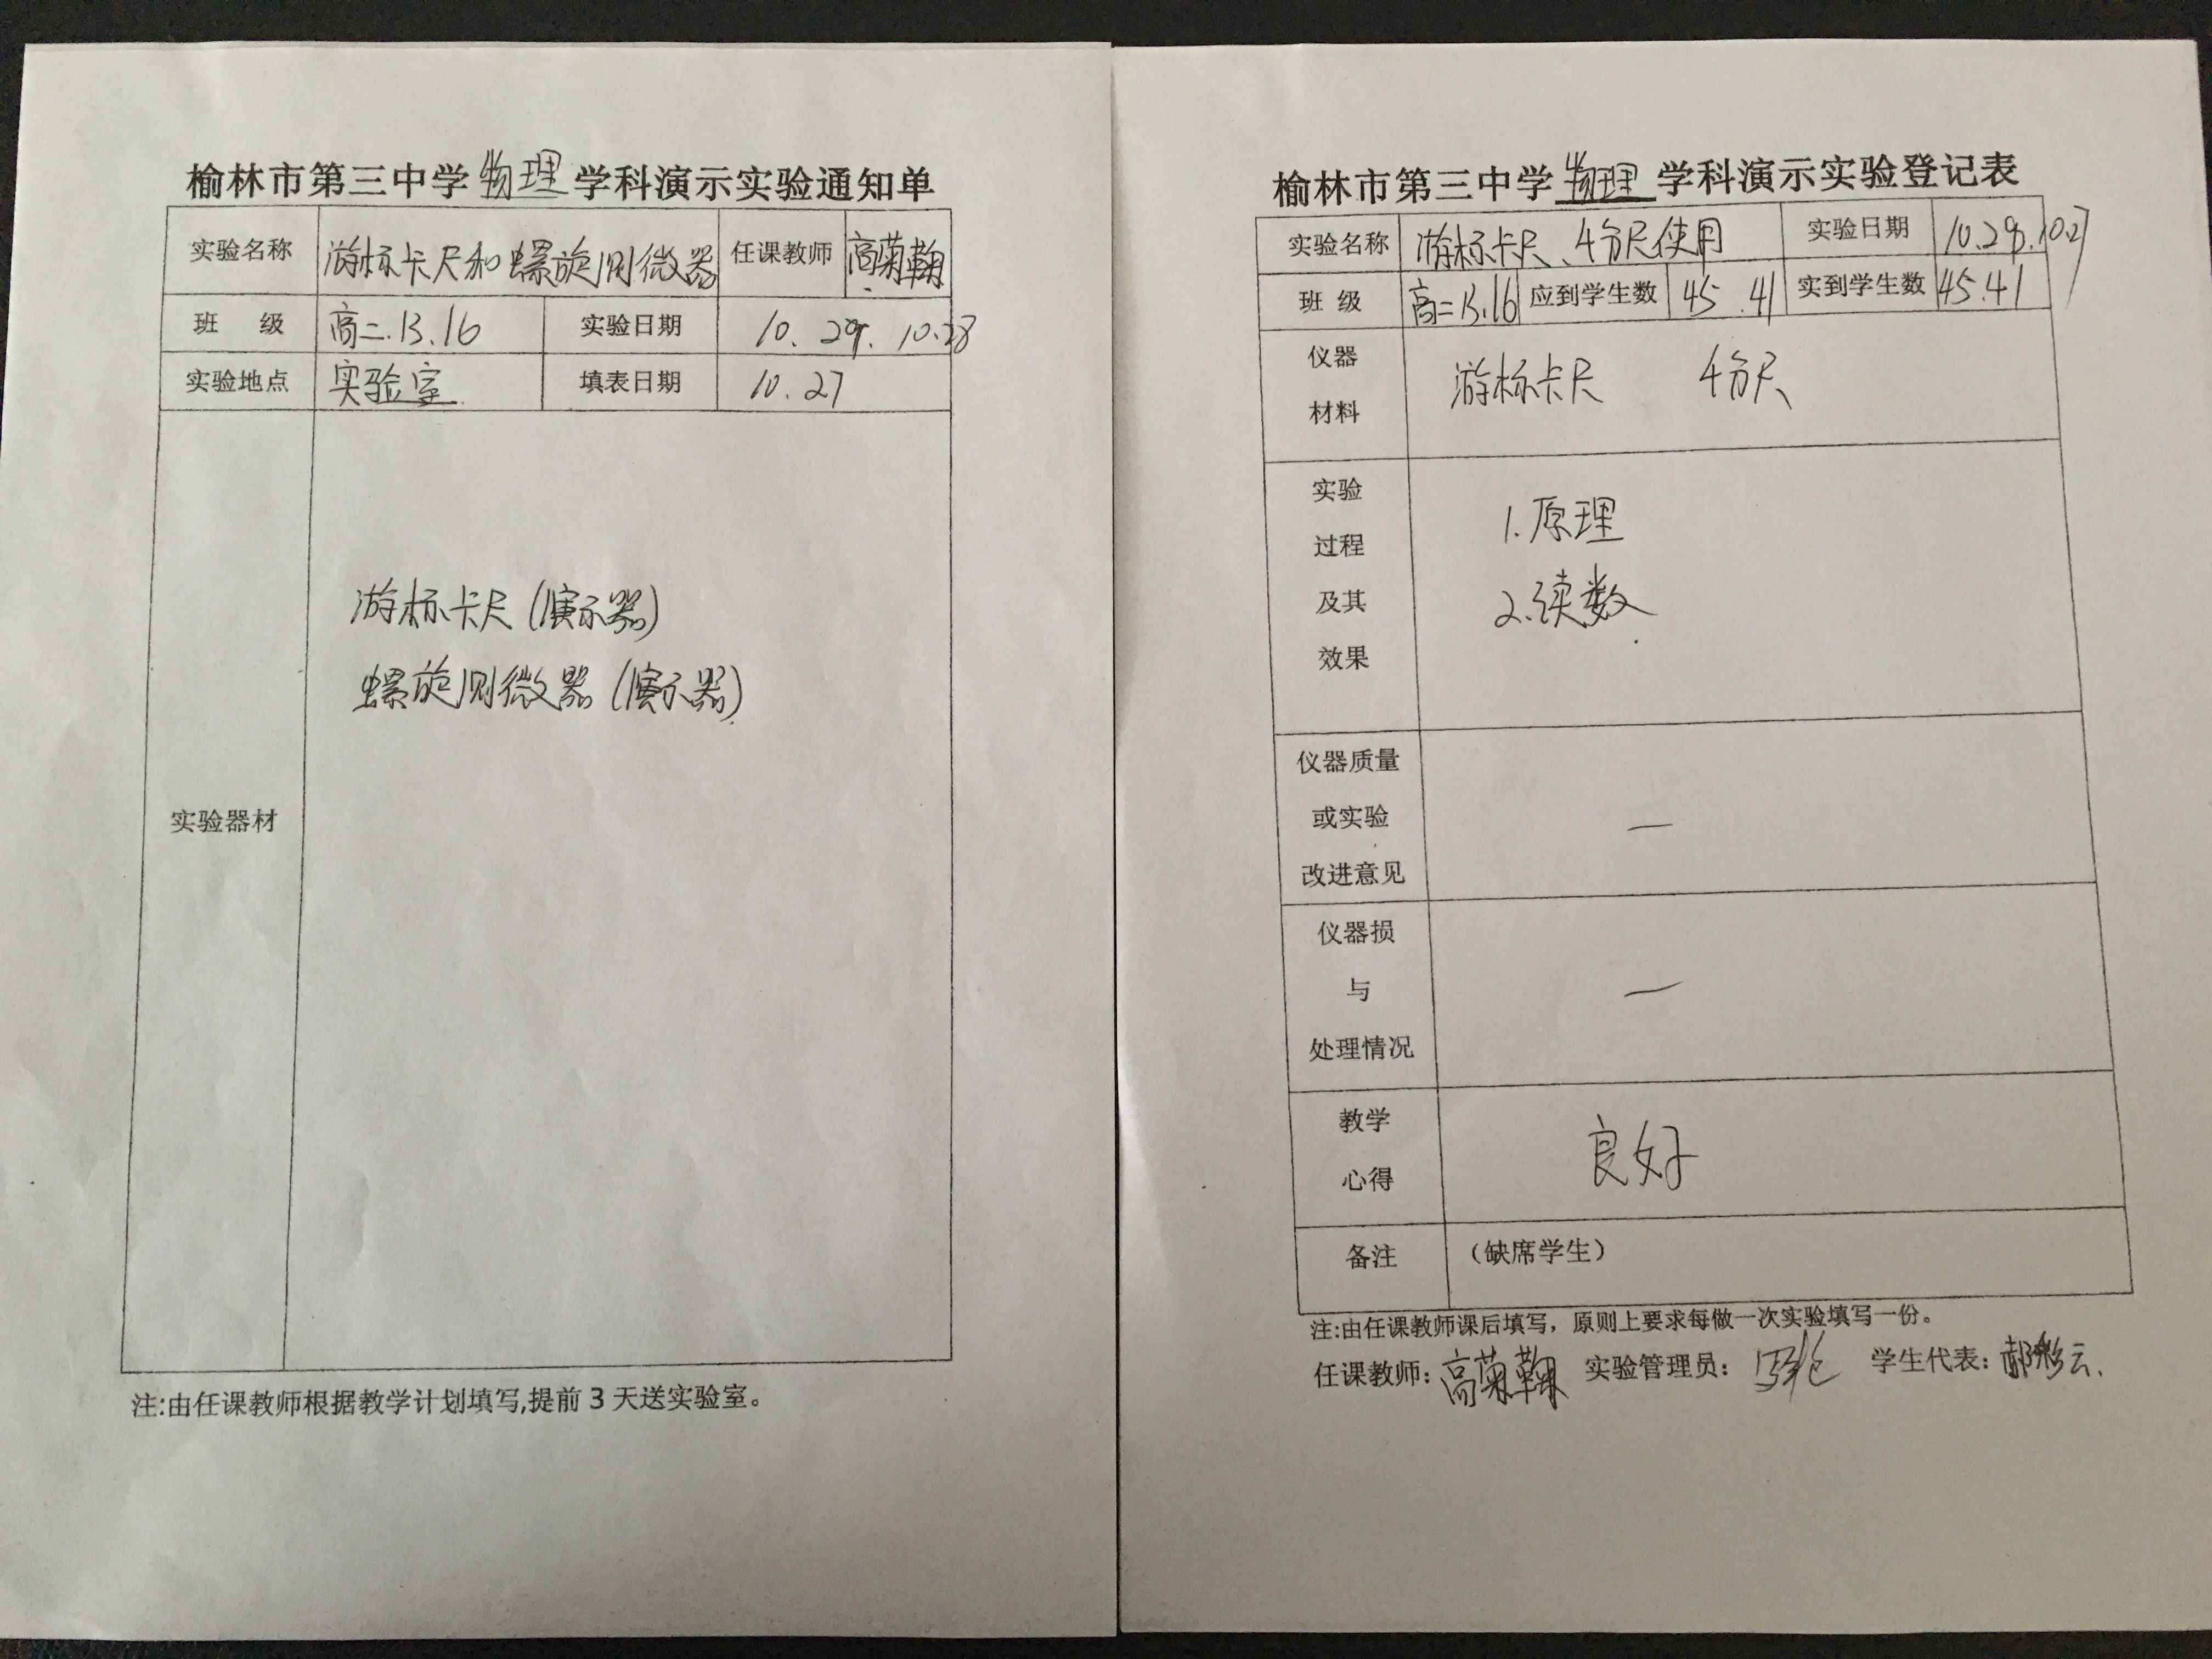 榆林市第三中学物理学科演示实验通知单
实验名称 游标卡尺和螺旋测微器 任课教师 高菊鞠
班 级 高二.13.16 实验日期 10.29. 10.28
实验地点 实验室 填表日期 10.27
实验器材
游标卡尺(演示器)
螺旋测微器(演示器)
注:由任课教师根据教学计划填写,提前3天送实验室。
榆林市第三中学物理学科演示实验登记表
实验名称 游标卡尺、千分尺使用 实验日期 10.29.10.27
班 级 高二13.16 应到学生数 45.41 实到学生数 45.41
仪器
材料
游标卡尺 千分尺
实验
过程
及其
效果
1.原理
2.读数
仪器质量
或实验
改进意见
—
仪器损
与
处理情况
—
教学
心得
良好
备注 (缺席学生)
注:由任课教师课后填写，原则上要求每做一次实验填写一份。
任课教师:高菊鞠 实验管理员: 学生代表:郝彩云.